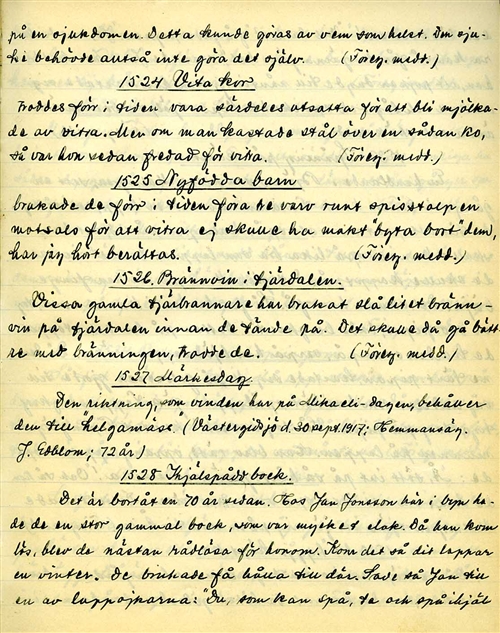 på en sjukdomen. Detta kunde göras av vem som helst. Den sju-
ke behövde alltså inte göra det själv. (Föreg. medd.)
1524 Vita kor
troddes förr i tiden vara särdeles utsatta för att bli mjölka-
de av vitra. Men om man kastade stål över en sådan ko,
så var hon sedan fredad för vitra. (Föreg. medd.)
1525 Nyfödda barn
brukade de förr i tiden föra tre varv runt spisstolpen
motsols för att vitra ej skulle ha makt "byta bort" dem,
har jag hört berättas. (Föreg. medd.)
1526. Brännvin i tjärdalen.
Vissa gamla tjärbrännare har brukat slå litet bränn-
vin på tjärdalen innan de tände på. Det skulle då gå bätt-
re med bränningen, trodde de. (Föreg. medd.)
1527 Märkesdag.
Den riktning, som vinden har på Mikaeli-dagen, behåller
den till "helgamäss". (Västergissjö d. 30 sept. 1917; Hemmansäg.
J. Edblom; 72 år)
1528 Ihjälspådd bock.
Det är bortåt en 70 år sedan. Hos Jan Jonsson här i byn ha-
de de en stor gammal bock, som var mycket elak. Då han kom
lös, blev de nästan rådlösa för honom. Kom det så dit lappar
en vinter. De brukade få hålla till där. Sade så Jan till
en av lappojkarna: "Du, som kan spå, ta och spå ihjäl